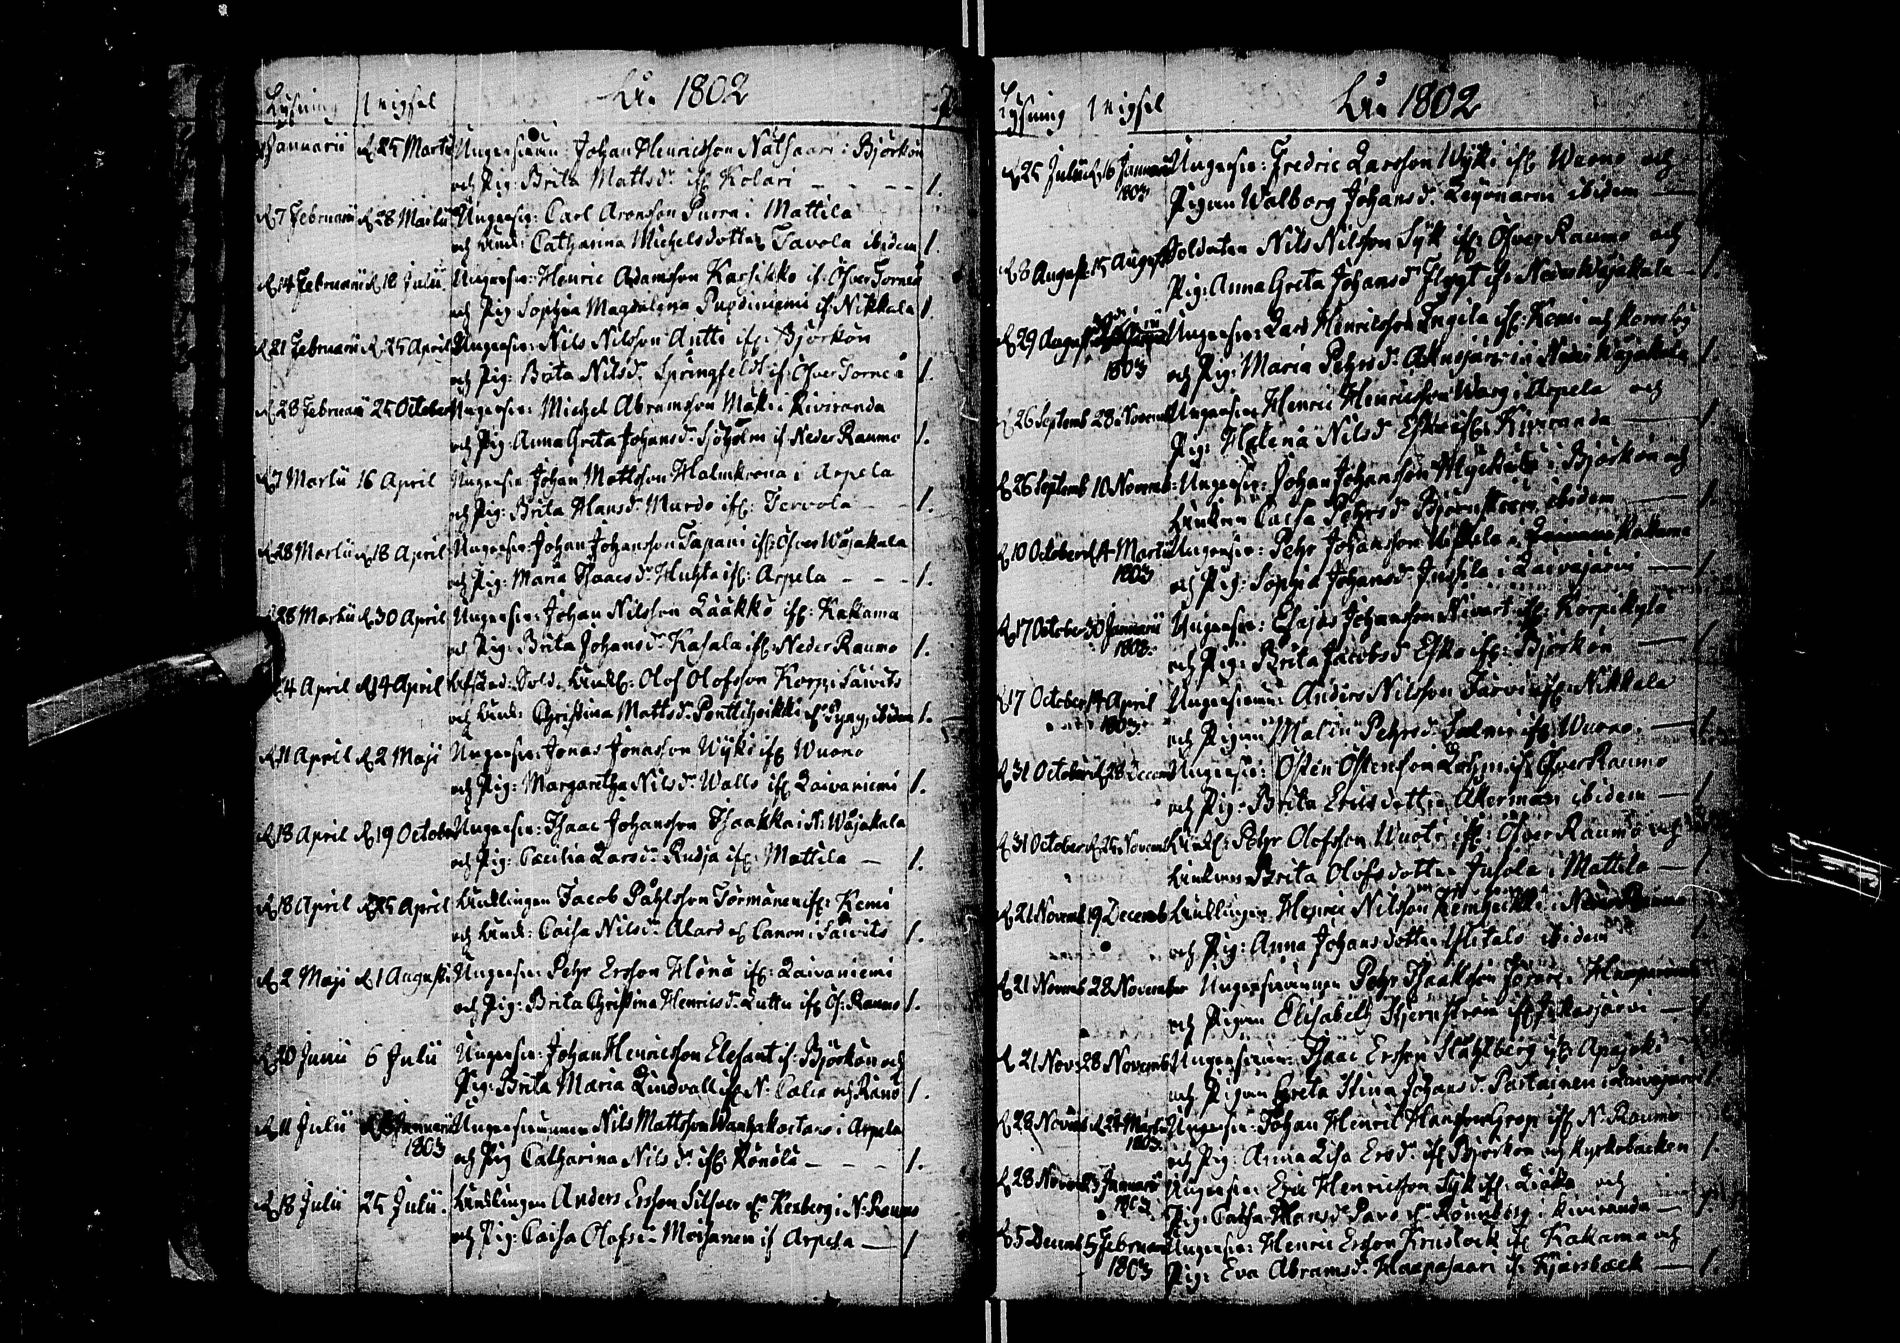 Lysning Vigsel År 1802
Januarii d. 25 Martii Ungersven: Johan Henricsson Nätsaari i Björkön
och Pig: Brita Mattsdr if. Kolari 1.
d. 7 Februarii d. 28 Martii Ungersv: Carl Aronsson Purra i Mattila
och Enk: Catharina Michelsdotter Tavola ibidem 1.
d. 14 Februarii d. 18 Julii Ungersv: Henric Adamsson Karhikko if. Öfver Torneå
och Pig Sophia Magdalena if. Nikkala 1.
d. 21 Februarii d. 25 April Ungersv: Nils Nilsson Antti if. Björkön
och Pig: Brita Nilsdr Springfeldt if. Öfver Torneå 1.
d. 28 Februarii 25 October Ungersv: Michel Abramsson Mäki i Kiviranda
och Pig: Anna Greta Johansdr Sjöholm if. Neder Raumo 1.
d. 7 Martii 16 April Ungersv Johan Mattsson Halmkrona i Arpela
och Pig: Brita Hansdr Murdo if. Tervola 1.
d. 28 Martii d. 18 April Ungersv: Johan Johansson Tapani if. Öfver Wojakala
och Pig: Maria Isaacsdr Huhta if. Arpela 1.
d. 28 Martii d. 30 April Ungersv: Johan Nilsson Lääkkö if. Kakama
och Pig: Brita Johansdr Kasala if. Neder Raumo 1.
d. 4 April d. 14 April Sold. Enkl. Olof Olofsson Korpi Saivits
och Enk: Christina Mattsdr ibidem 1.
d. 11 April d. 2 Maji Ungersv: Jonas Jonasson Wyki if. Wuono
och Pig: Margaretha Nilsdr Walls if. Laivaniemi 1.
d. 18 April d. 19 October Ungersv: Isaac Johansson Isaakka i N: Wojakala
och Pig: Caecilia Larsdr Rudja if. Mattila 1.
d. 18 April d. 25 April Enklingen Jacob Påhlsson Törmänen if. Kemi
och Enk: Caisa Nilsdr Alard el. Canon i Saivits 1.
d. 2 Maji d. 1 Augusti Ungersv: Pehr Ersson Hönä if. Laivaniemi
och Pig: Brita Christina Henricsdr Luttu if. Öf: Raumo 1.
d. 20 Junii 6 Julii Ungersv: Johan Henricsson Elefant if. Björkön och
Pig: Brita Maria Lindvall if. N: Calix och Rånö 1.
d. 11 Julii Januarii 1803 Ungersvennen Nils Mattsson i Arpela
och Pig Catharina Nilsdr if. Könölä 1.
d. 18 Julii 25 Julii Enklingen Anders Ersson Silfver el. Kexberg i N: Raumo
och Pig: Caisa Olofsdr Moihanen if Arpela 1
Lysning Vigsel År 1802
d. 25 Julii d. 16 Januarii 1803 Ungersv: Fredric Larsson Wyki if. Wuono och
Pigan Walborg Johansdr ibidem
d. 8 August: 15 August Soldaten Nils Nilsson Syk if. Öfver Raumo och
Pig: Anna Greta Johansdr Flygt if. Neder Wojakala 1.
d. 29 August 1803 Ungersv: Lars Henricsson Engila if. Kemi och
och Pig: Maria Pehrsdr i Neder Wojakala 1.
d. 26 Septemb 28 Novemb Ungersv Henric Henricsson Warg i Arpela och
Pig: Helena Nilsdr Esko if. Kiviranda 1.
d. 26 Septemb 10 Novemb: Ungersv: Johan Johansson i Björkön och
Enkan Caisa Pehrsdr ibidem 1.
d. 10 October d. 4 Martii 1803 Ungersv: Pehr Johansson Kakama
och Pig: Sophia Johansdr Jussila i Laivajärvi 1.
d. 17 October 30 Januarii 1803. Ungersv: Esajas Johansson if. Korpikylä
och Pig: Brita Jacobsdr Esko if. Björkön 1
17 October 14 April 1803 Ungersven: Anders Nilsson Järvi if. Nikkala
och Pigan Malin Pehrsdr if. Wuono 1.
d. 31 October d. 28 Decemb Ungersv: Östen Östensson if. Öfver Raumo
och Pig: Brita Ericsdotter Åkerman ibidem 1
d. 31 October d. 25 Novemb Enkl: Pehr Olofsson if. Öfver Raumo och
Enkan Brita Olofsdotter Jusola i Mattila 1
d. 21 Novemb 19 Decemb Enklingen Henric Nilsson i Neder Raumo
och Pig: Anna Johansdotter ibidem 1
d. 21 Novemb 28 November Ungersvennen Pehr Isaksson
och Pigan Elisabeth 1.
d. 21 Nov: 28 Novemb Ungersven: Isaac Ersson Ståhlberg if. Apajoki
och Pigan Greta Stina Johansdr i Laivajärvi 1.
d. 28 Novemb d. 24 Martii 1803. Ungersv: Johan Henric Hansson Grop if. N: Raumo
och Pig: Anna Lisa Ersdr if. Björkön och Kyrkobacken 1.
d. 28 Novemb Januarii 1803 Ungersv: Eric Henricsson Syk if. Liakka och
Pig: Caisa Hansdr i Kiviranda 1.
d. 5 Decemb 5 Februarii 1803 Ungersv: Henric Ersson if. Kakama och
Pig: Eva Abramsdr Haapasaari if. 1.